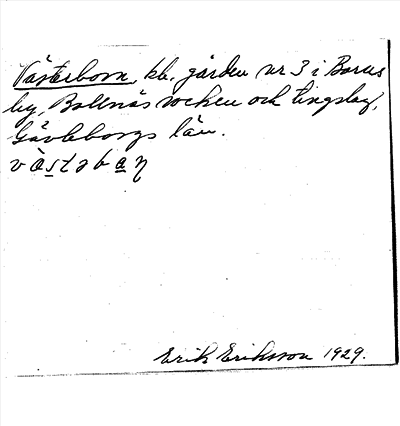 Västerborn, kb., gården nr 3 i Borens
by, Bollnäs socken och tingslag,
Gävleborgs län.
västəbaɳ
Erik Eriksson 1929.